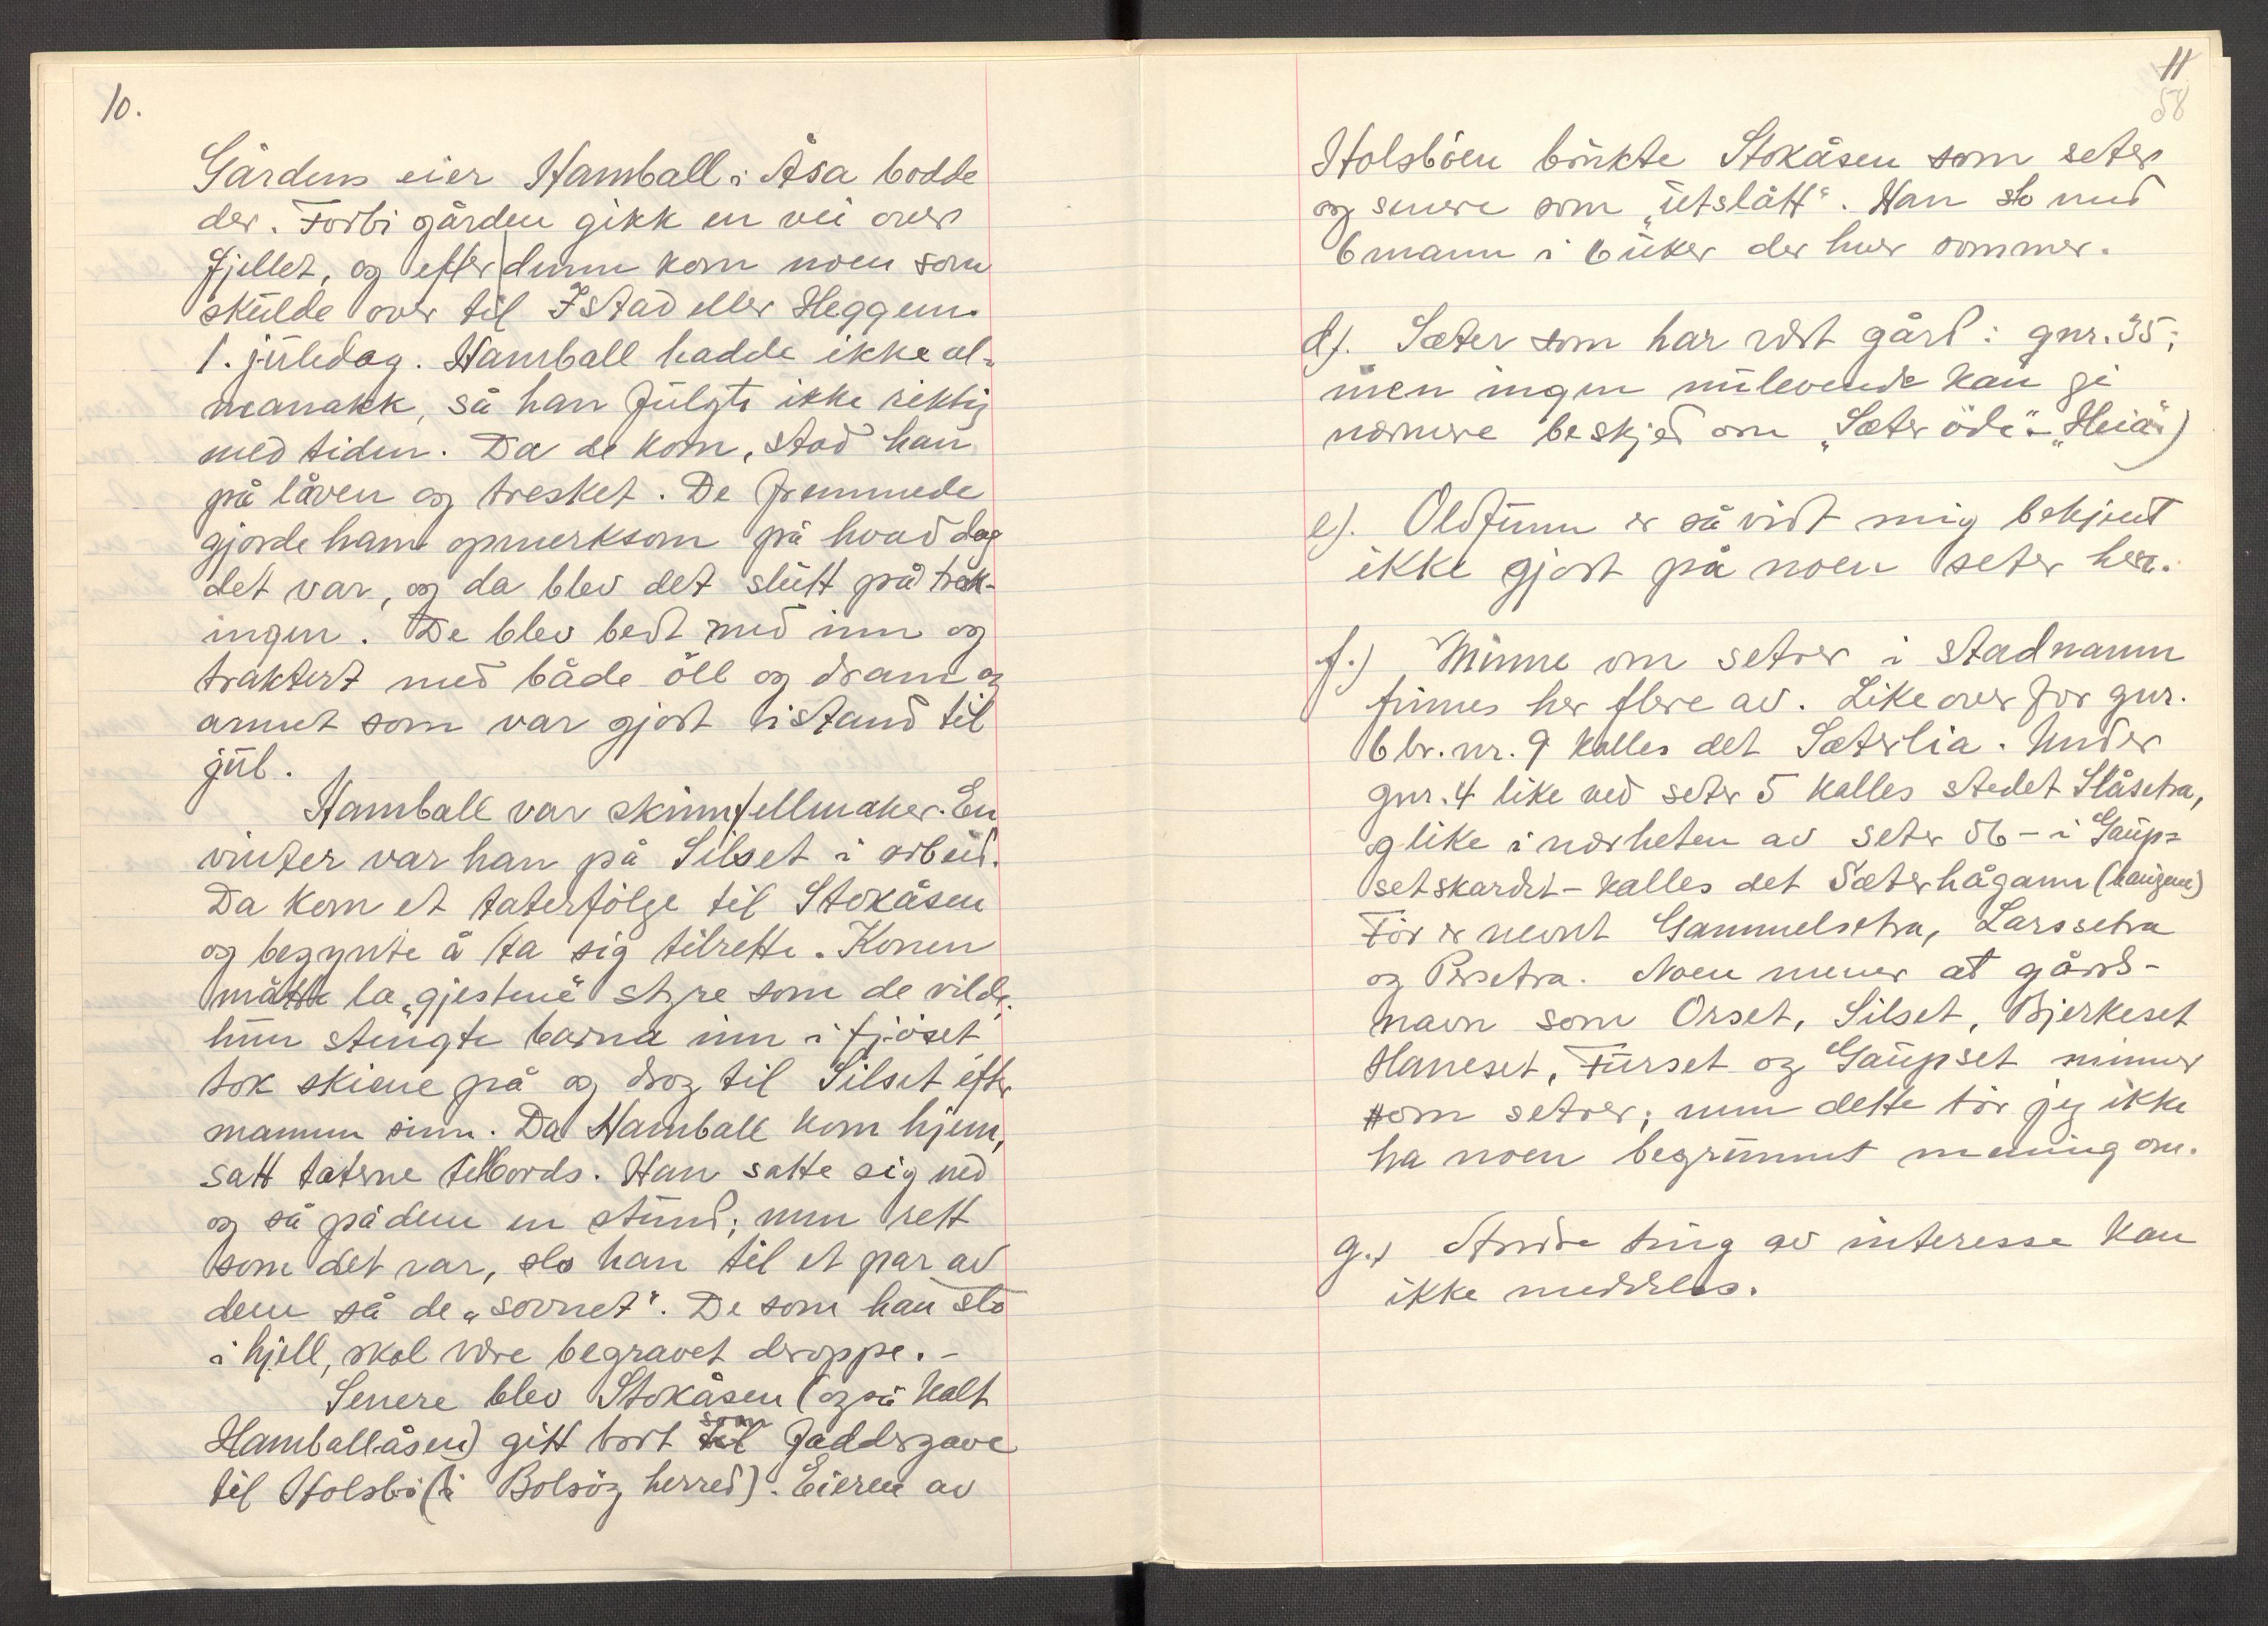 10.
Gårdens eier Hamball i Åsa bodde
der. Forbi gården gikk en vei over
fjellet, og efter denn kom noen som
skulde over til Istad eller Heggem.
1. juledag. Hamball hadde ikke al-
manakk, så han fulgte ikke riktig
med tiden. Da de kom, stod han
på låven og tresket. De fremmede
gjorde ham opmerksom på hvad dag
det var, og da blev det slutt på tresk-
ingen. De blev bedt med inn og
traktert med både öll og dram og
annet som var gjort istand til
jul.
Hamball var skinnfellmaker. En
vinter var han på Silset i arbeid.
Da kom et taterfölge til Stokåsen
og begynte å ta sig tilrette. Konen
måtte la „gjestene“ styre som de vilde.
hun stengte barna inn i fjöset
tok skiene på og drog til Silset efter
mannen sinn. Da Hamball kom hjem,
satt taterne tilbords. Han satte sig ned
og så på dem en stund; men rett
som det var, slo han til et par av
dem så de „sovnet“. De som han slo
i hjell, skal være begravet deroppe. -
Senere blev Stokåsen (også kalt
Hamballåsen) gitt bort som faddergave
til Holsbö (i Bolsöy herred). Eieren av
11
58
Holsböen brukte Stokåsen som seter
og senere som „utslått“. Han slo med
6 mann i 6 uker der hver sommer.
d). Sæter som har vært gård: gnr. 35;
men ingen nulevende kan gi
nærmere beskjed om „Sæter öde“ - „Heia“)
e). Oldfunn er så vidt mig bekjent
ikke gjort på noen seter her.
f.) Minne om setrer i stadnamn
finnes her flere av. Like overfor gnr.
6 br. nr. 9 kalles det Sæterlia. Under
gnr. 4 like ved seter 5 kalles stedet Slåsetra,
og like i nærheten av seter 56 - i Gaup-
setskardet - kalles det Sæterhågann (haugene)
För er nevnt Gammelsetra, Larssetra
og Persetra. Noen mener at gårds-
navn som Orset, Silset, Bjerkeset
Haneset, Furset og Gaupset minner
om setrer; men dette tör jeg ikke
ha noen begrunnet mening om.
g.) Andre ting av interesse kan
ikke meddeles.